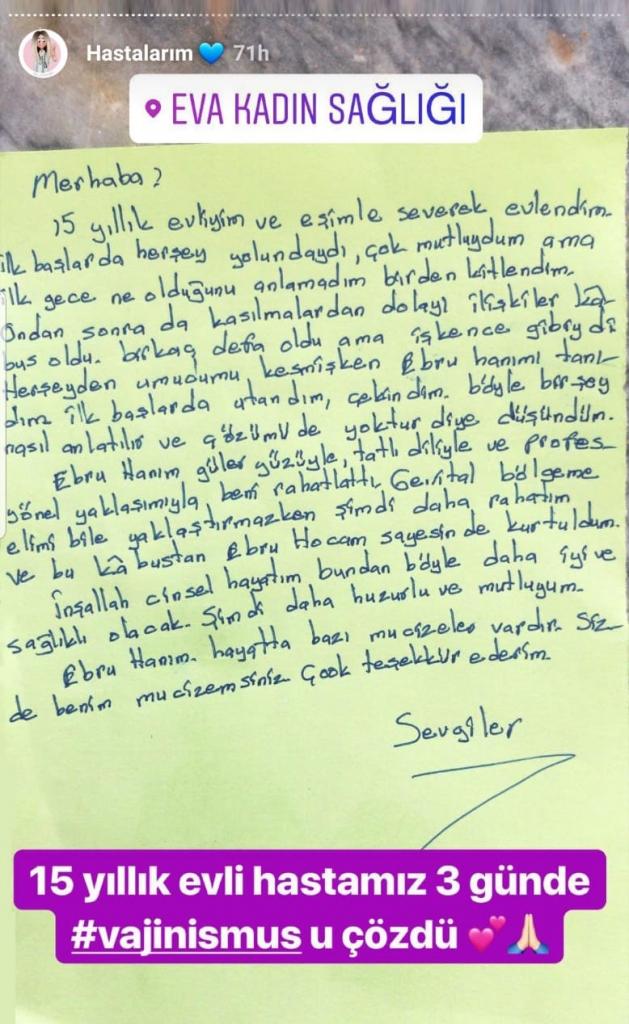 Hastalarım 💙 71h
EVA KADIN SAĞLIĞI
Merhaba?
15 yıllık evliyim ve eşimle severek evlendim.
ilk başlarda herşey yolundaydı, çok mutluydum ama
ilk gece ne olduğunu anlamadım birden kitlendim.
Ondan sonra da kasılmalardan dolayı ilişkiler kâ-
bus oldu. birkaç defa oldu ama işkence gibiydi
Herşeyden umudumu kesmişken Ebru hanımı tanı-
dım ilk başlarda utandım, çekindim. böyle birşey
nasıl anlatılır ve çözümü de yoktur diye düşündüm.
Ebru Hanım güler yüzüyle, tatlı diliyle ve profes
yönel yaklaşımıyla beni rahatlattı. Genital bölgeme
elimi bile yaklaştırmazken şimdi daha rahatım
ve bu kâbustan Ebru Hocam sayesinde kurtuldum.
İnşallah cinsel hayatım bundan böyle daha iyi ve
sağlıklı olacak. Şimdi daha huzurlu ve mutluyum.
Ebru Hanım. hayatta bazı mucizeler vardır. Siz
de benim mucizemsiniz Çook teşekkür ederim.
Sevgiler
15 yıllık evli hastamız 3 günde
#vajinismus u çözdü 💕🙏🏻